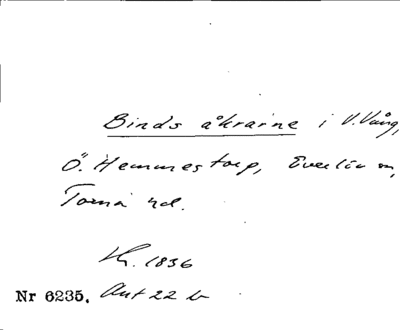 Binds åkrarne i V. Vång,
Ö. Hemmestorp, Everlöv sn,
Torna hd.
1836
Nr 6235. Akt 22 b